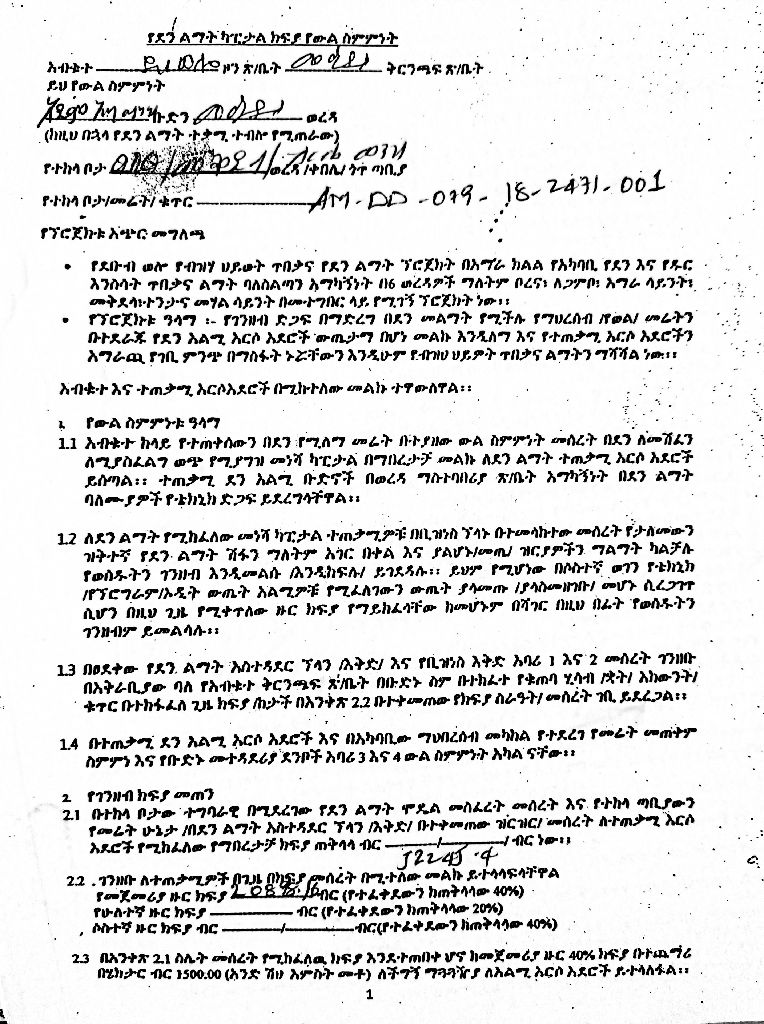 የደን ልማት ካፒታል ክፍያ የውል ስምምነት
አብቁተ ዞን ጽ/ቤት ቅርንጫፍ ጽ/ቤት
ይህ የውል ስምምነት
ቡድን ወረዳ
(ከዚህ በኋላ የደን ልማት ተቃሚ ተብሎ የሚጠራው)
የተከላ ቦታ ወረዳ /ቀበሌ/ ጎጥ ጣቢያ
የተከላ ቦታ/መሬት/ ቁጥር AM-DD-079-18-2471-001
የፕሮጀክቱ አጭር መግለጫ
• የደቡብ ወሎ የብዝሃ ህይወት ጥበቃና የደን ልማት ፕሮጀክት በአማራ ክልል የአካባቢ የደን እና የዱር
እንስሳት ጥበቃና ልማት ባለስልጣን አማካኝነት በ6 ወረዳዎች ማለትም ቦረና፣ ለጋምቦ፣ አማራ ሳይንት፣
መቅደላ፣ተንታና መሃል ሳይንት በመተግበር ላይ የሚገኝ ፕሮጀክት ነው፡፡
• የፕሮጀክቱ ዓላማ ፡- የገንዘብ ድጋፍ በማድረግ በደን መልማት የሚችሉ የማህረሰብ /የወል/ መሬትን
በተደራጁ የደን አልሚ አርሶ አደሮች ውጤታማ በሆነ መልኩ እንዲለማ እና የተጠቃሚ አርሶ አደሮችን
አማራጪ የገቢ ምንጭ በማስፋት ኑሯቸውን እንዲሁም የብዝሀ ህይዎት ጥበቃና ልማትን ማሻሻል ነው፡፡
አብቁተ እና ተጠቃሚ አርሶአደሮች በሚከተለው መልኩ ተዋውለዋል፡፡
1. የውል ስምምነቱ ዓላማ
1.1 አብቁተ ከላይ የተጠቀሰውን በደን የሚለማ መሬት በተያዘው ውል ስምምነት መሰረት በደን ለመሸፈን
ለሚያስፈልግ ወጭ የሚያግዝ መነሻ ካፒታል በማበረታቻ መልኩ ለደን ልማት ተጠቃሚ አርሶ አደሮች
ይሰጣል፡፡ ተጠቃሚ ደን አልሚ ቡድኖች በወረዳ ማስተባበሪያ ጽ/ቤት አማካኝነት በደን ልማት
ባለሙያዎች የቴክኒክ ድጋፍ ይደረግላቸዋል፡፡
1.2 ለደን ልማት የሚከፈለው መነሻ ካፒታል ተጠቃሚዎቹ በቢዝነስ ፕላኑ በተመላከተው መሰረት የታለመውን
ዝቅተኛ የደን ልማት ሽፋን ማለትም አገር በቀል እና ያልሆኑ/መጤ/ ዝርያዎችን ማልማት ካልቻሉ
የወሰዱትን ገንዘብ እንዲመልሱ /እንዲከፍሉ/ ይገደዳሉ፡፡ ይህም የሚሆነው በሶስተኛ ወገን የቴክኒክ
/የፕሮግራም/ኦዲት ውጤት አልሚዎቹ የሚፈለገውን ውጤት ያላመጡ /ያላስመዘገቡ/ መሆኑ ሲረጋገጥ
ሲሆን በዚህ ጊዜ የሚቀጥለው ዙር ክፍያ የማይከፈላቸው ከመሆኑም በሻገር በዚህ በፊት የወሰዱትን
ገንዘብም ይመልሳሉ፡፡
1.3 በፀደቀው የደን ልማት አስተዳደር ፕላን /እቅድ/ እና የቢዝነስ እቅድ አባሪ 1 እና 2 መሰረት ገንዘቡ
በአቅራቢያው ባለ የአብቁተ ቅርንጫፍ ጽ/ቤት በቡድኑ ስም በተከፈተ የቁጠባ ሂሳብ /ቋት/ አካውንት/
ቁጥር በተከፋፈለ ጊዜ ክፍያ /ከታች በአንቀጽ 2.2 በተቀመጠው የክፍያ ስራዓት/ መሰረት ገቢ ይደረጋል፡፡
1.4 በተጠቃሚ ደን አልሚ አርሶ አደሮች እና በአካባቢው ማህበረሰብ መካከል የተደረገ የመሬት መጠቀም
ስምምነ እና የቡድኑ መተዳደሪያ ደንቦች አባሪ 3 እና 4 ውል ስምምነት አካል ናቸው፡፡
2. የገንዘብ ክፍያ መጠን
2.1 በተከላ ቦታው ተግባራዊ በሚደረገው የደን ልማት ሞዴል መስፈረት መሰረት እና የተከላ ጣቢያውን
የመሬት ሁኔታ /በደን ልማት አስተዳደር ፕላን /እቅድ/ በተቀመጠው ዝርዝር/ መሰረት ለተጠቃሚ አርሶ
አደሮች የሚከፈለው የማበረታቻ ክፍያ ጠቅላላ ብር / / ብር ነው፡፡
2.2 . ገንዘቡ ለተጠቃሚዎች በጊዜ በክፍያ መሰረት በሚተለው መልኩ ይተላለፍላቸዋል
የመጀመሪያ ዙር ክፍያ ብር (የተፈቀደውን ከጠቅላላው 40%)
የሁለተኛ ዙር ክፍያ ብር (የተፈቀደውን ከጠቅላላው 20%)
ሶስተኛ ዙር ክፍያ ብር / ብር(የተፈቀደውን ከጠቅላላው 40%)
2.3 በአንቀጽ 2.1 ስሌት መሰረት የሚከፈለዉ ክፍያ እንደተጠበቀ ሆኖ ከመጀመሪያ ዙር 40% ክፍያ በተጨማሪ
በሄክታር ብር 1500.00 (አንድ ሽህ አምስት መቶ) ለችግኝ ማጓጓዣያ ለአልሚ አርሶ አደሮች ይተላለፋል፡፡
1